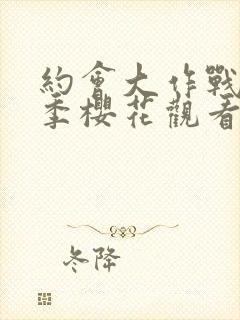 約會大作戰
季櫻花觀看
冬降